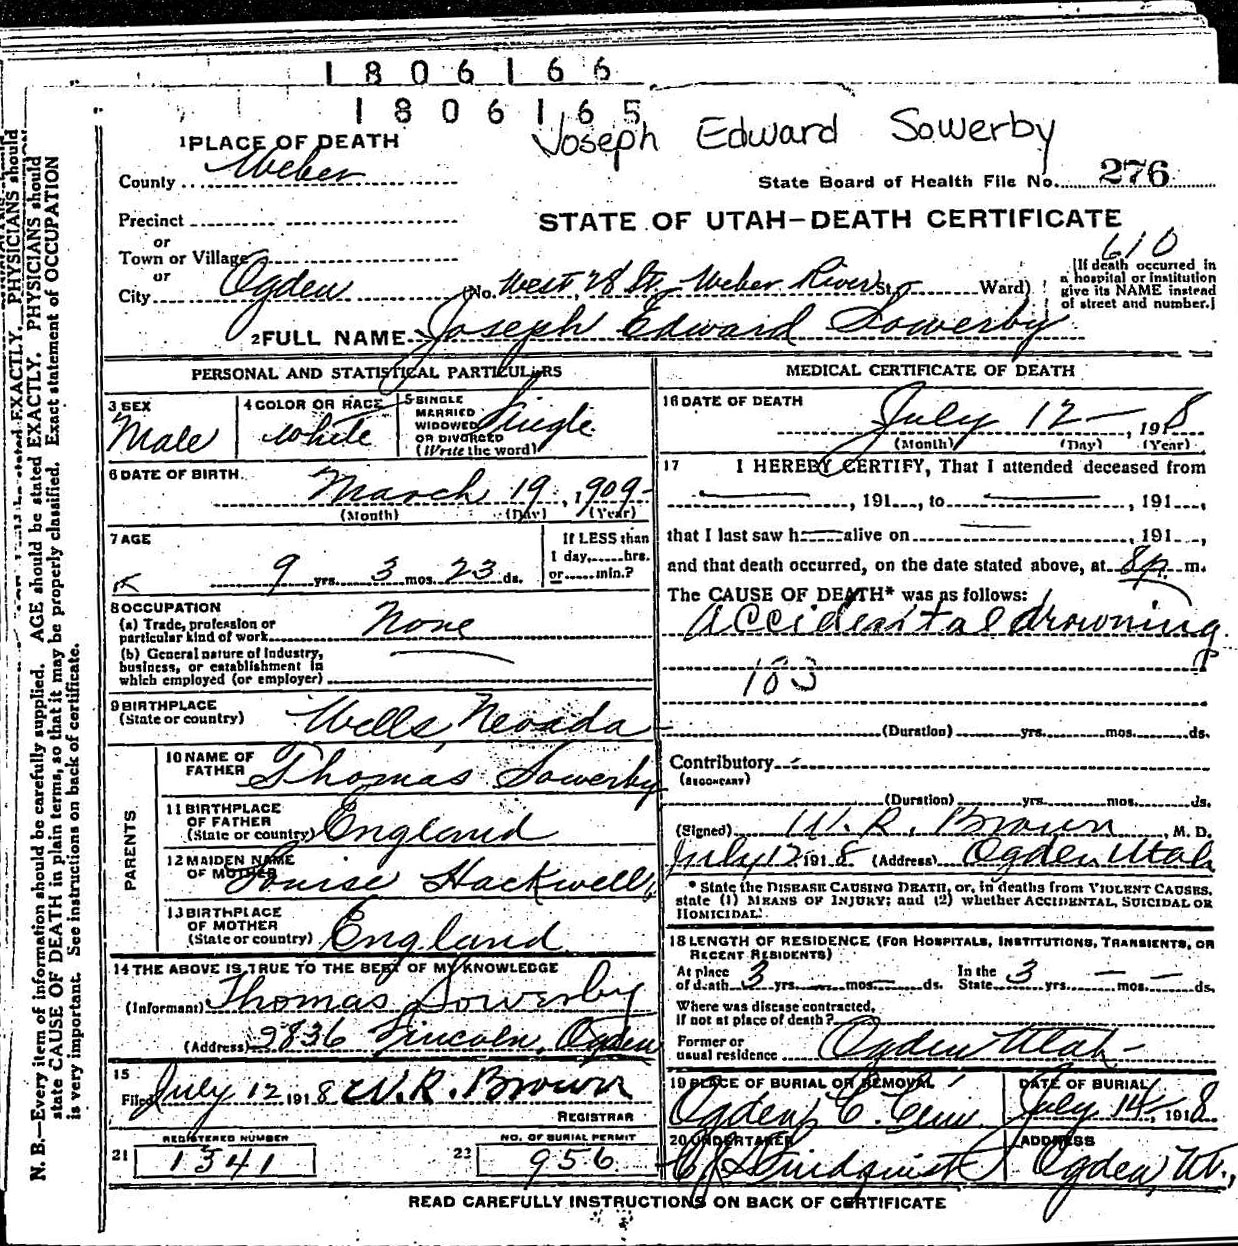 1806166
1806165
Joseph Edward Sowerby
1 PLACE OF DEATH
County Weber
State Board of Health File No. 276
Precinct
STATE OF UTAH—DEATH CERTIFICATE
or
Town or Village
610
or
City Ogden (No. West 28 St, Weber River St. Ward)
[If death occurred in
a hospital or institution
give its NAME instead
of street and number.]
2 FULL NAME Joseph Edward Sowerby
PERSONAL AND STATISTICAL PARTICULARS
3 SEX
Male
4 COLOR OR RACE
White
5 SINGLE
MARRIED
WIDOWED
OR DIVORCED
(Write the word)
Single
6 DATE OF BIRTH
March 19, 1909
(Month) (Day) (Year)
7 AGE
9 yrs. 3 mos. 23 ds.
If LESS than
1 day, hrs.
or min.?
8 OCCUPATION
(a) Trade, profession or
particular kind of work None
(b) General nature of industry,
business, or establishment in
which employed (or employer)
9 BIRTHPLACE
(State or country) Wells, Nevada
PARENTS
10 NAME OF
FATHER Thomas Sowerby
11 BIRTHPLACE
OF FATHER
(State or country) England
12 MAIDEN NAME
OF MOTHER Louise Hackwell
13 BIRTHPLACE
OF MOTHER
(State or country) England
14 THE ABOVE IS TRUE TO THE BEST OF MY KNOWLEDGE
(Informant) Thomas Sowerby
(Address) 2836 Lincoln, Ogden
15
Filed July 12 1918 W. R. Brown
REGISTRAR
REGISTERED NUMBER
21 1341
NO. OF BURIAL PERMIT
22 956
MEDICAL CERTIFICATE OF DEATH
16 DATE OF DEATH
July 12, 1918
(Month) (Day) (Year)
17 I HEREBY CERTIFY, That I attended deceased from
, 191 , to , 191 ,
that I last saw h alive on , 191 ,
and that death occurred, on the date stated above, at 8 p. m.
The CAUSE OF DEATH* was as follows:
Accidental drowning
183
(Duration) yrs. mos. ds.
Contributory
(SECONDARY)
(Duration) yrs. mos. ds.
(Signed) W. R. Brown, M. D.
July 12 1918 (Address) Ogden Utah
* State the DISEASE CAUSING DEATH, or, in deaths from VIOLENT CAUSES,
state (1) MEANS OF INJURY; and (2) whether ACCIDENTAL, SUICIDAL OR
HOMICIDAL.
18 LENGTH OF RESIDENCE (FOR HOSPITALS, INSTITUTIONS, TRANSIENTS, OR
RECENT RESIDENTS)
At place
of death 3 yrs. mos. ds.
In the
State 3 yrs. mos. ds.
Where was disease contracted,
If not at place of death?
Former or
usual residence Ogden Utah
19 PLACE OF BURIAL OR REMOVAL
Ogden C. Cem
DATE OF BURIAL
July 14, 1918
20 UNDERTAKER
Lindquist
ADDRESS
Ogden, Ut.,
READ CAREFULLY INSTRUCTIONS ON BACK OF CERTIFICATE
N. B.—Every item of information should be carefully supplied. AGE should be stated EXACTLY. PHYSICIANS should
state CAUSE OF DEATH in plain terms, so that it may be properly classified. Exact statement of OCCUPATION
is very important. See instructions on back of certificate.